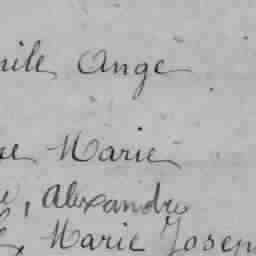 Ange
Marie
, Alexandre
Marie Josep